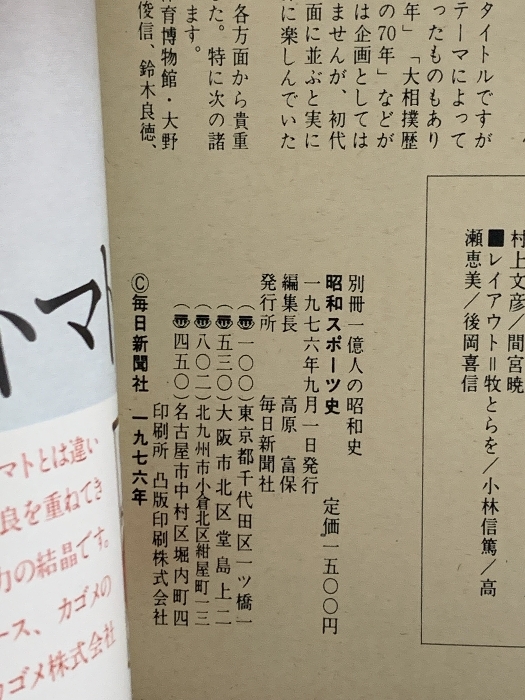 タイトルですが
テーマによって
ったものもあり
年」「大相撲歴
の70年」などが
は企画としては
ませんが、初代
面に並ぶと実に
に楽しんでいた
各方面から貴重
した。特に次の諸
ます。
育博物館・大野
俊信、鈴木良徳、
村上文彦／間宮暁
■レイアウト＝牧とらを／小林信篤／高
瀬恵美／後岡喜信
別冊一億人の昭和史
昭和スポーツ史
定価一五〇〇円
一九七六年九月一日発行
編集長 高原 富保
発行所 毎日新聞社
（〠一〇〇）東京都千代田区一ツ橋一
（〠五三〇）大阪市北区堂島上二
（〠八〇二）北九州市小倉北区紺屋町一三
（〠四五〇）名古屋市中村区堀内町四
印刷所 凸版印刷株式会社
©毎日新聞社 一九七六年
トマト
マトとは違い
良を重ねてき
力の結晶です。
ース、カゴメの
カゴメ株式会社